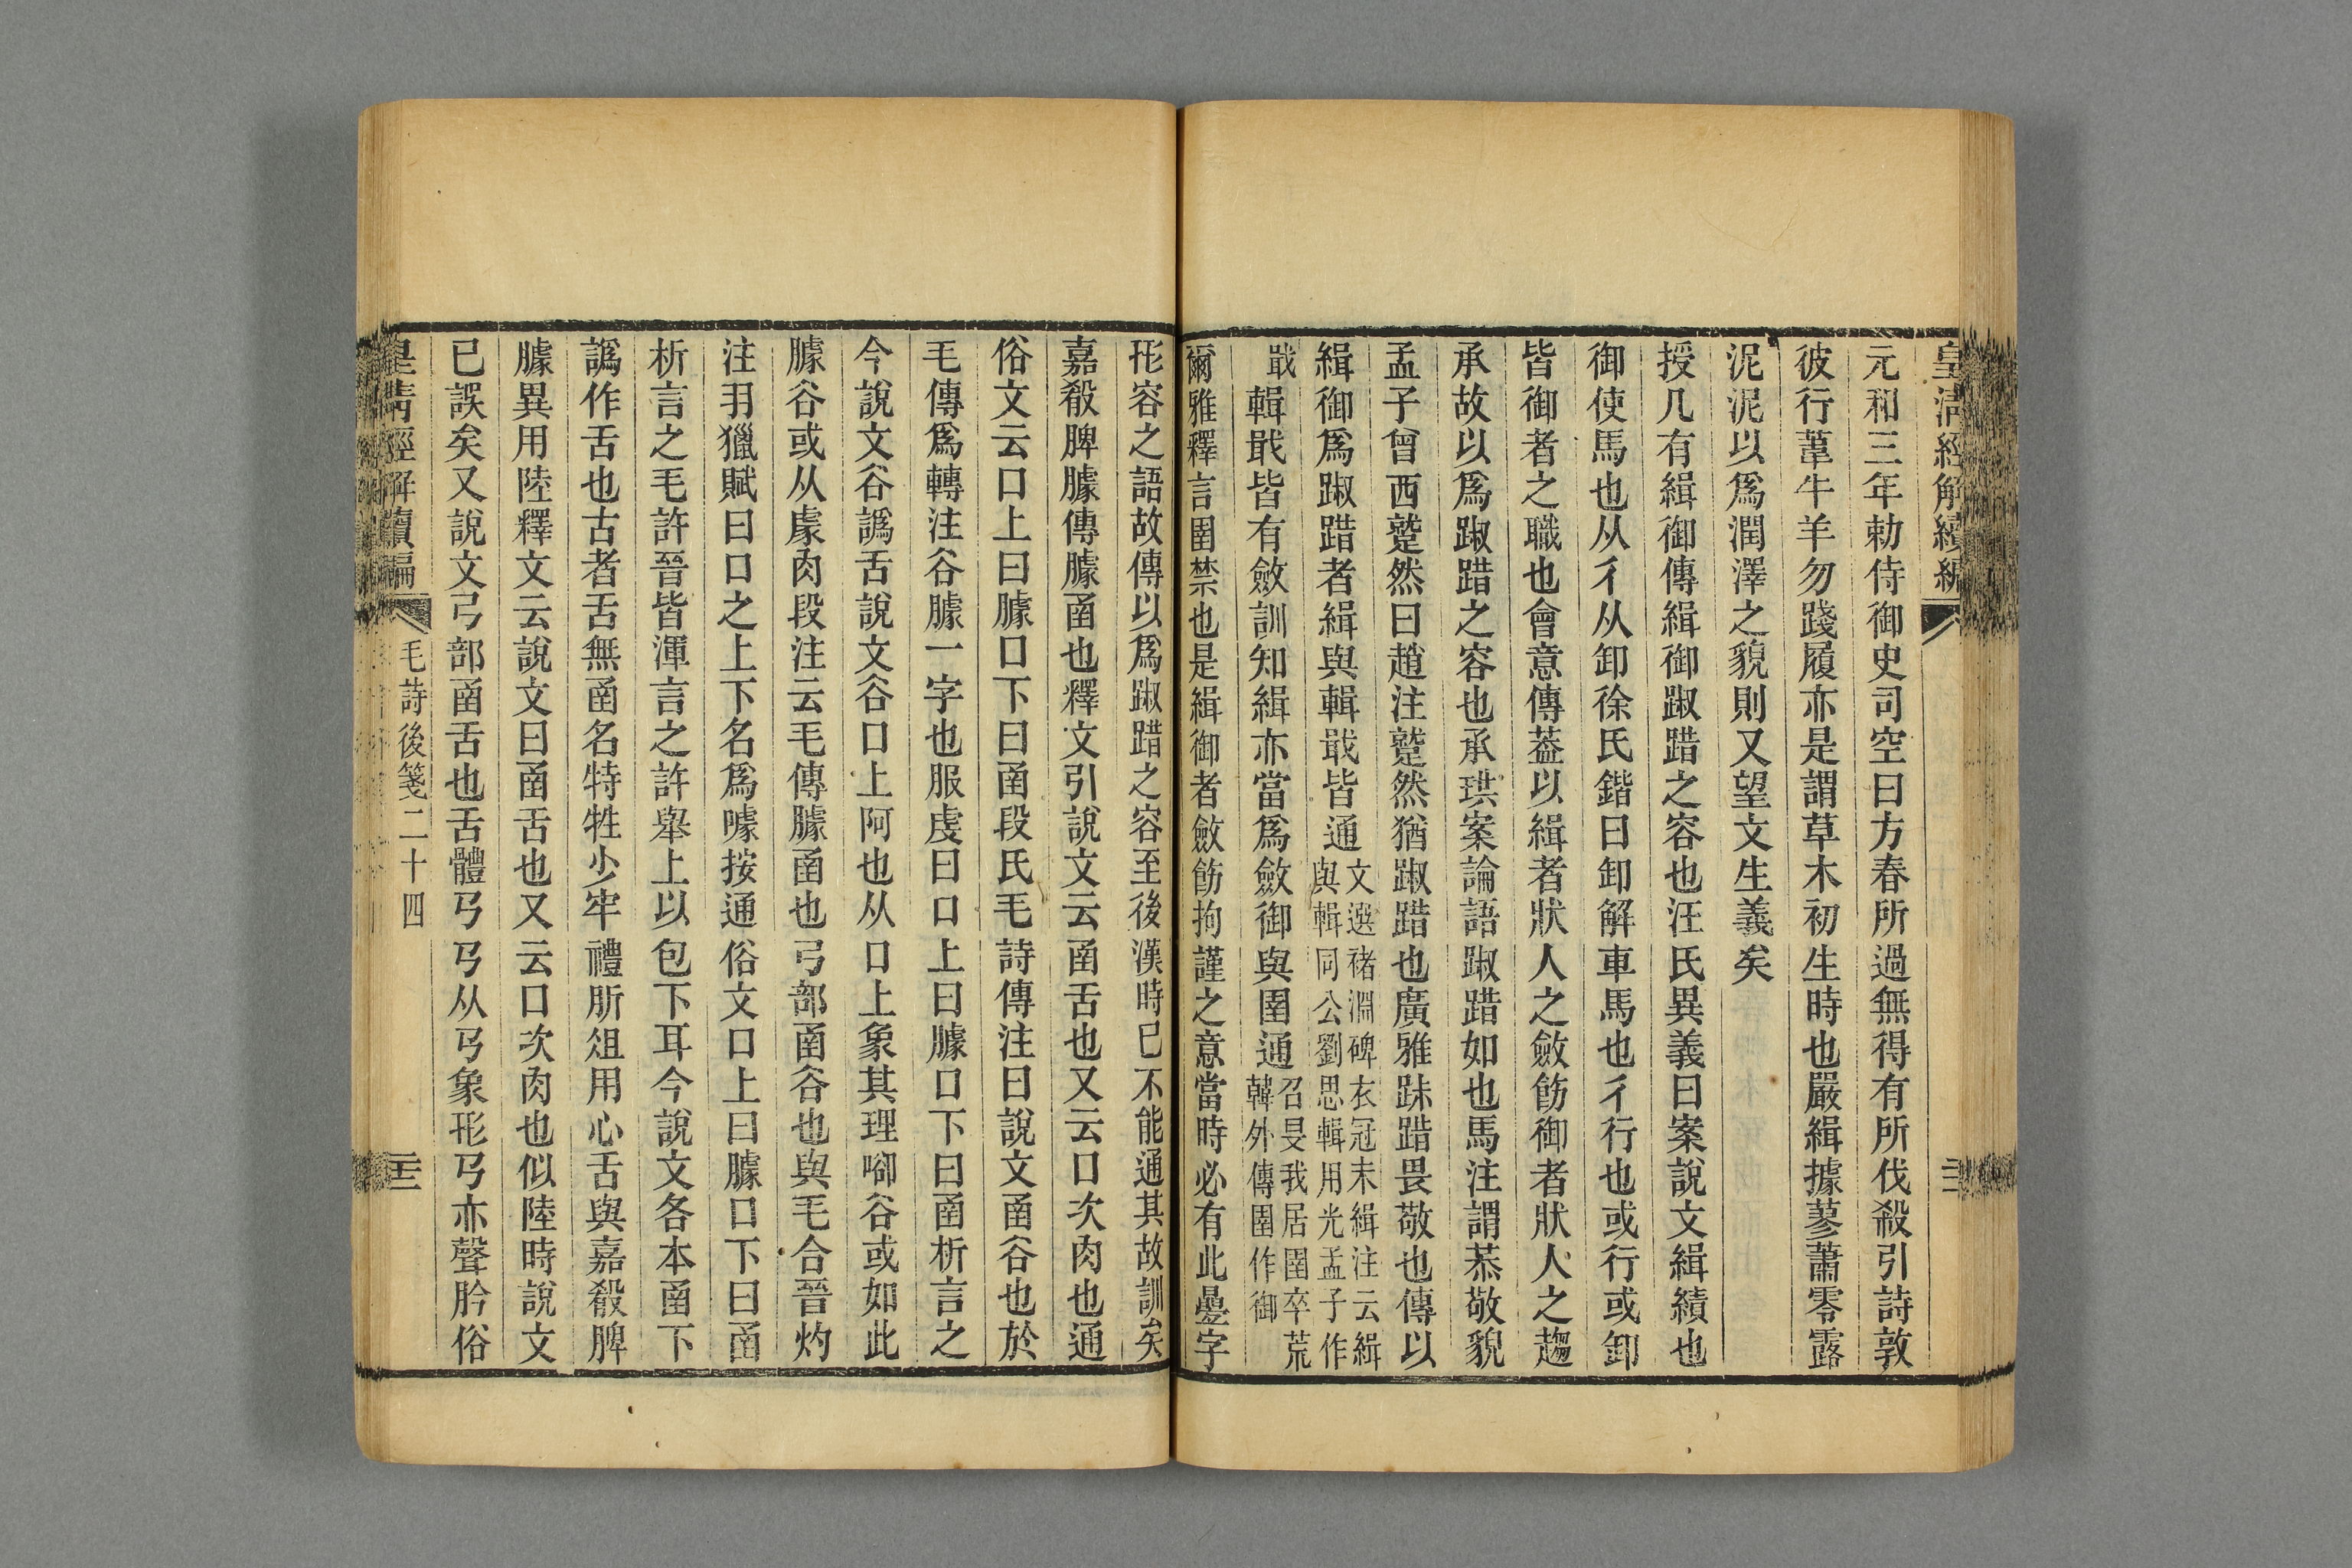 皇清經解續編
元和三年勅侍御史司空曰方春所過無得有所伐殺引詩敦
彼行葦牛羊勿踐履亦是謂草木初生時也嚴緝據蓼蕭零露
泥泥以爲潤澤之貌則又望文生義矣
授几有緝御傳緝御踧踖之容也汪氏異義曰案說文緝績也
御使馬也从彳从卸徐氏鍇曰卸解車馬也彳行也或行或卸
皆御者之職也會意傳葢以緝者狀人之斂飭御者狀人之趨
承故以爲踧踖之容也承珙案論語踧踖如也馬注謂恭敬貌
孟子曾西蹵然曰趙注蹵然猶踧踖也廣雅踧踖畏敬也傳以
緝御爲踧踖者緝與輯戢皆通文選褚淵碑衣冠未緝注云緝與輯同公劉思輯用光孟子作
戢輯戢皆有斂訓知緝亦當爲斂御與圉通召旻我居圉卒荒韓外傳圉作御
爾雅釋言圉禁也是緝御者斂飭拘謹之意當時必有此疊字
形容之語故傳以爲踧踖之容至後漢時已不能通其故訓矣
嘉殽脾臄傳臄函也釋文引說文云函舌也又云口次肉也通
俗文云口上曰臄口下曰函段氏毛詩傳注曰說文函谷也於
毛傳爲轉注谷臄一字也服虔曰口上曰臄口下曰函析言之
今說文谷譌舌說文谷口上阿也从口上象其理㕁谷或如此
臄谷或从豦肉段注云毛傳臄函也弓部函谷也與毛合晉灼
注羽獵賦曰口之上下名爲噱按通俗文口上曰臄口下曰函
析言之毛許晉皆渾言之許舉上以包下耳今說文各本函下
譌作舌也古者舌無函名特牲少牢禮肵俎用心舌與嘉殽脾
臄異用陸釋文云說文曰函舌也又云口次肉也似陸時說文
已誤矣又說文弓部函舌也舌體㔾㔾从㔾象形㔾亦聲肣俗
皇清經解續編
毛詩後箋二十四